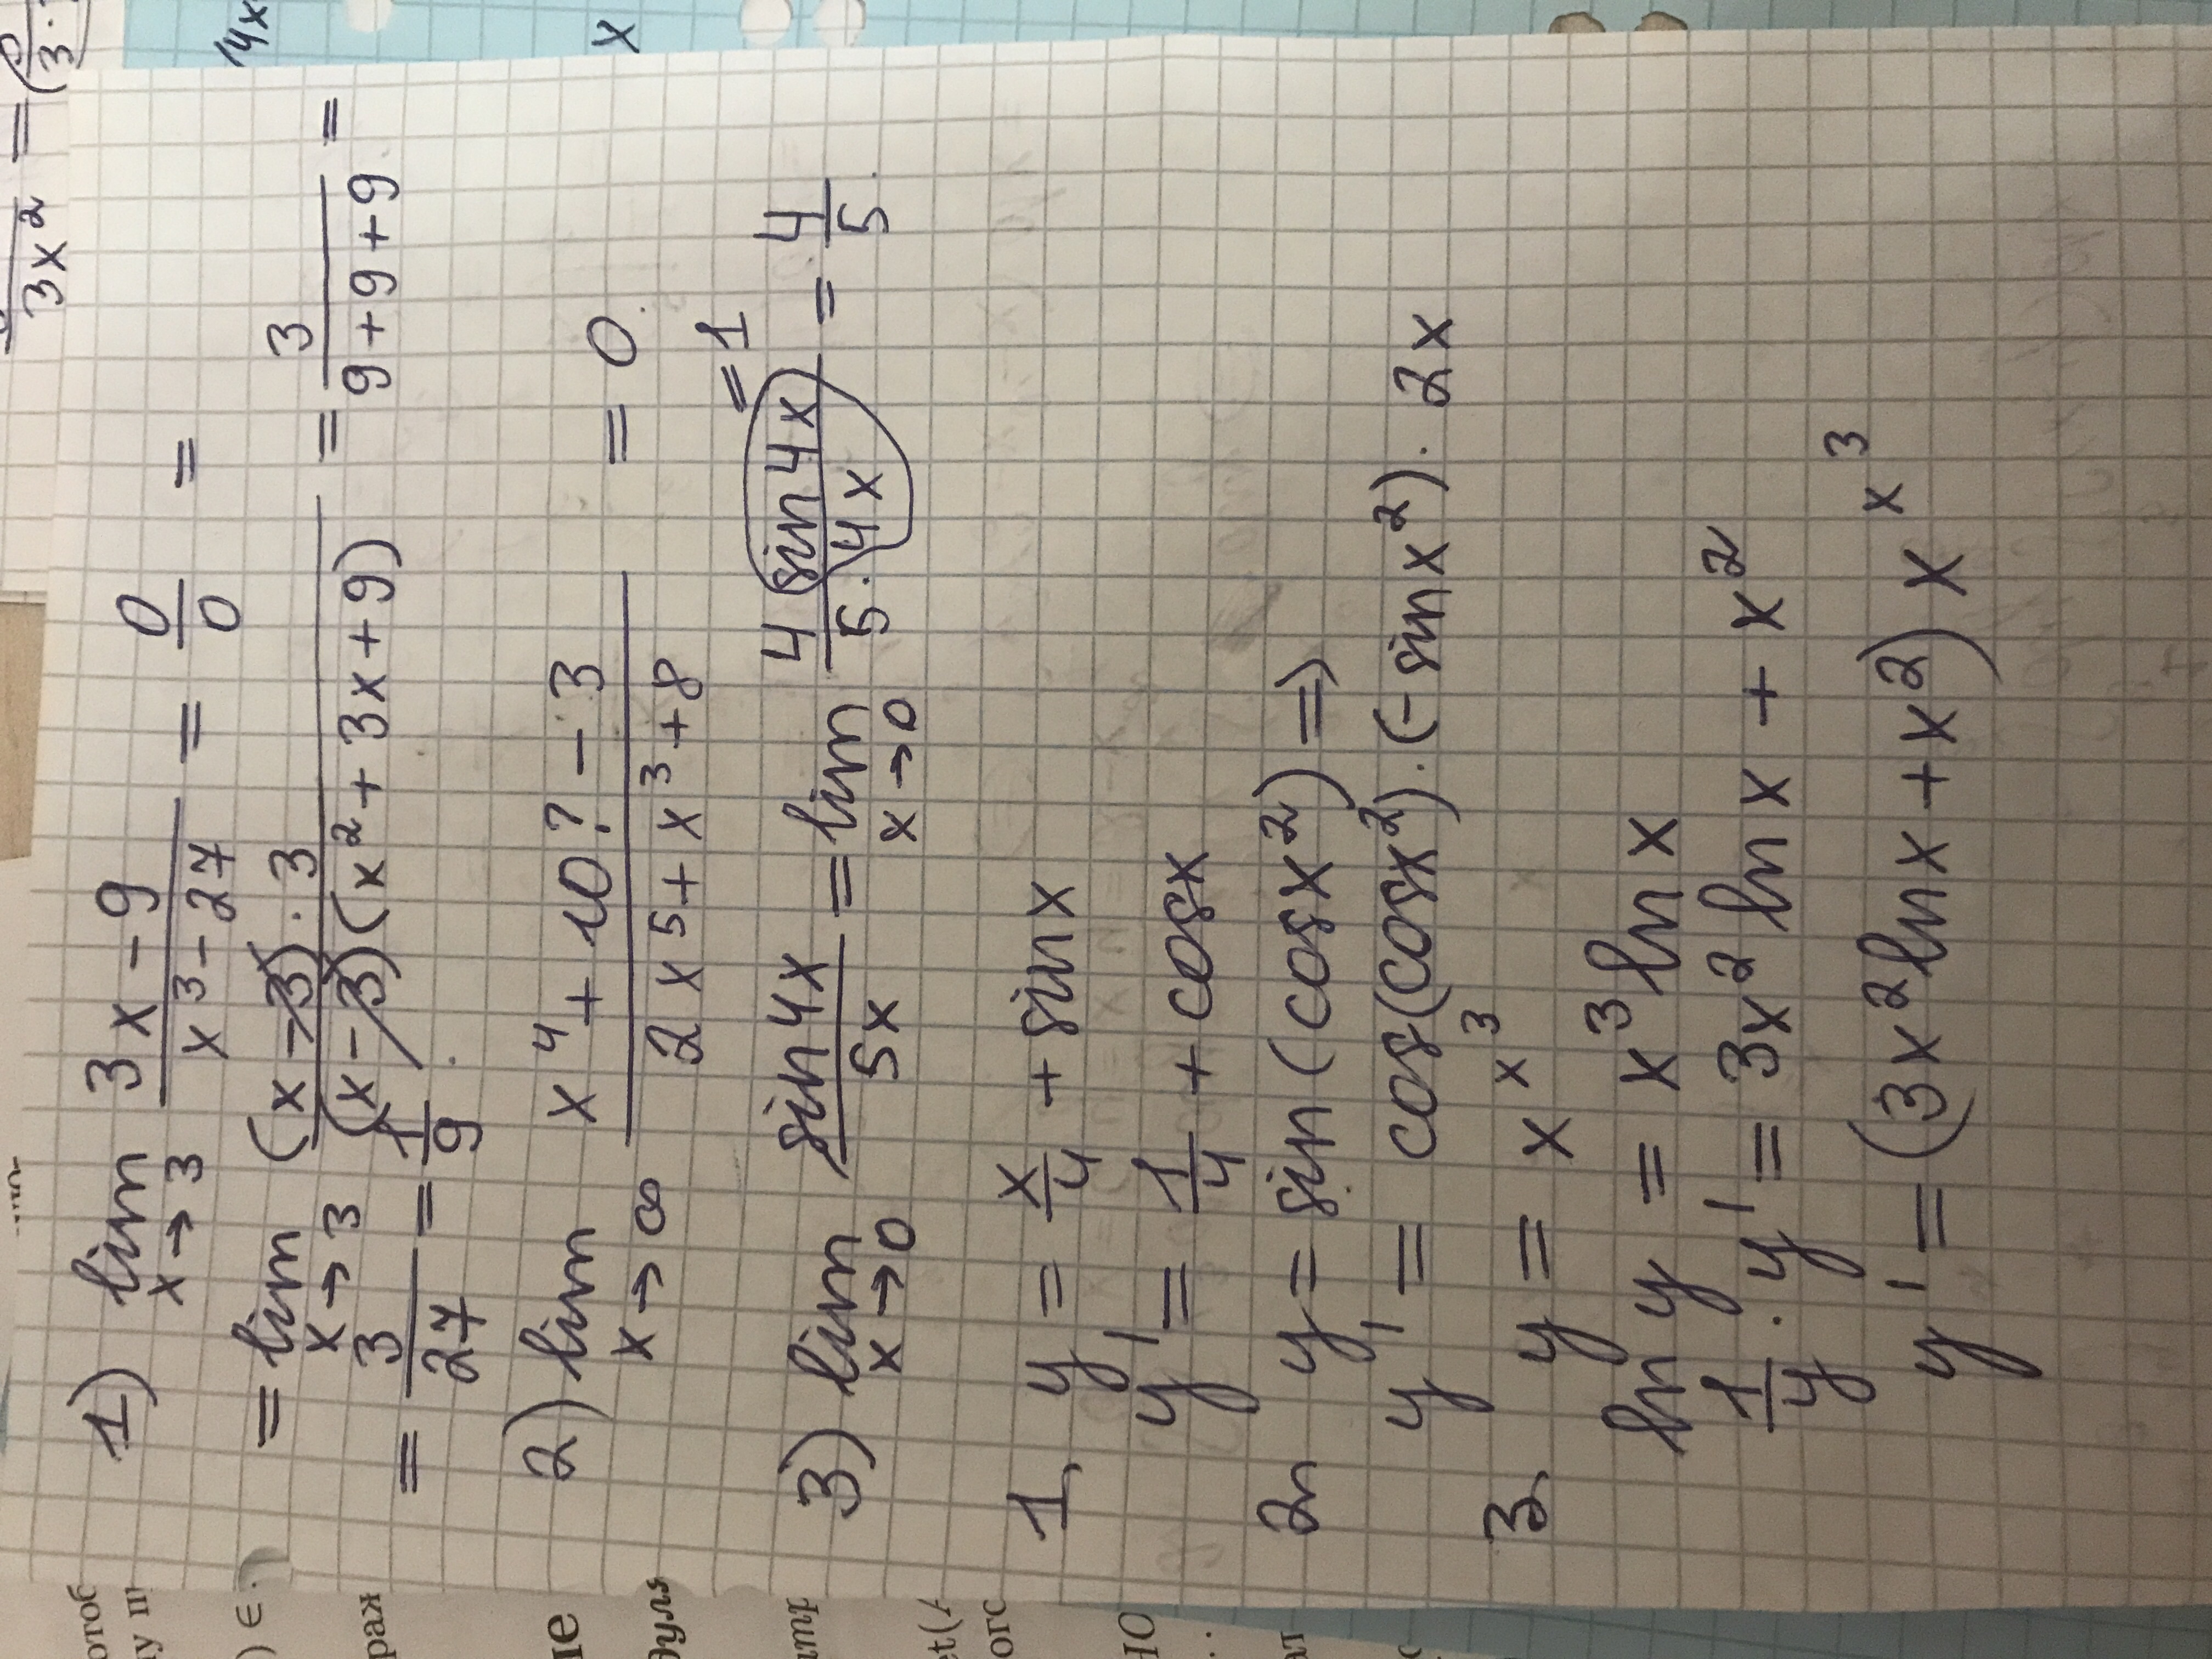 1) lim x→3 (3x-9)/(x³-27) = 0/0 =
= lim x→3 ((x-3)·3)/((x-3)(x²+3x+9)) = 3/(9+9+9) =
= 3/27 = 1/9.
2) lim x→∞ (x⁴+10?-3)/(2x⁵+x³+8) = 0.
3) lim x→0 sin4x/5x = lim x→0 (4 sin4x)/(5·4x) = 4/5.
=1
1, y = x/4 + sinx
y' = 1/4 + cosx
2, y = sin(cosx²) ⇒
y' = cos(cosx²)·(-sinx²)·2x
3, y = x^x³
ln y = x³lnx
1/y · y' = 3x²lnx + x²
y' = (3x²lnx+x²) x^x³
3x² =
4x
x
) ∈
раж
ме
дуля
et(A
ого
НО